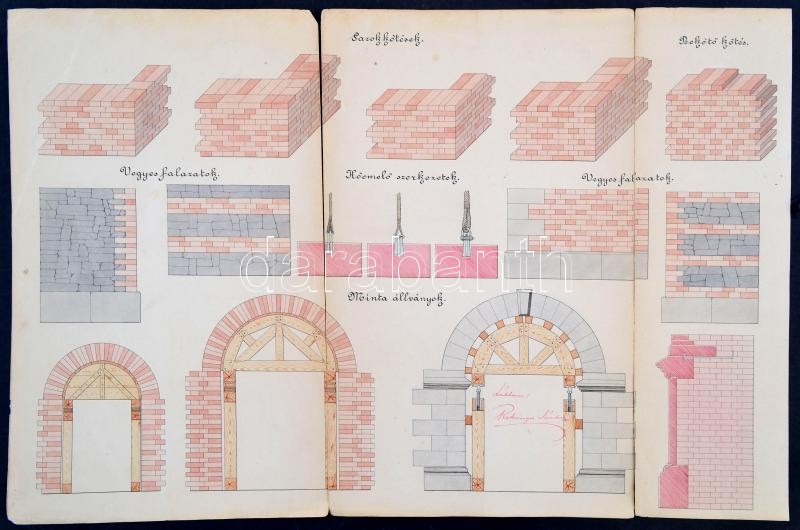 Sarokkötések.
Bekötő kötés.
Vegyes falazatok.
Kőemelő szerkezetek.
Vegyes falazatok.
darabanth
Minta állványok.
Láttam: